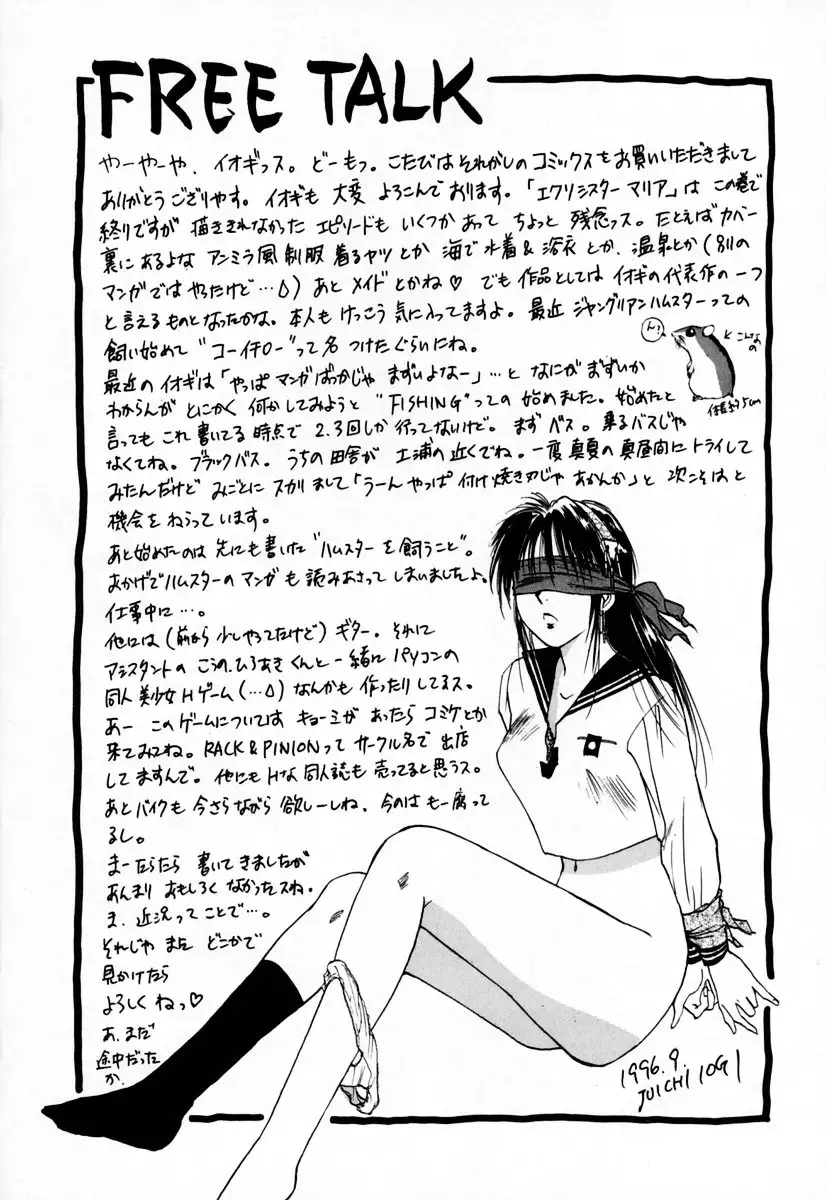 FREE TALK
やーやーや、イオギっス。どーもっ。こたびは それがしの コミックスを お買いいただきまして
ありがとうござりやす。イオギも 大変 よろこんで おります。「エクソシスター マリア」は この巻で
終りですが 描ききれなかった エピソードも いくつか あって ちょっと 残念っス。たとえば カバー
裏に あるよな アンミラ風 制服 着るヤツ とか 海で 水着&浴衣 とか、温泉とか(別の
マンガでは やったけど…△)あと メイドとかね♡ でも 作品としては イオギの代表作の一つ
と言えるものとなったかな。本人も けっこう 気に入ってますよ。最近 ジャンガリアンハムスターっての
飼い始めて "コーイチロー"って名 つけたぐらいにね。
ん?
こんなの
体長約7.5cm
最近のイオギは「やっぱ マンガばっかじゃ まずいよなー」…と なにが まずいか
わからんが とにかく 何かしてみようと "FISHING"っての 始めました。始めたと
言っても これ 書いてる 時点で 2.3回しか 行ってないけど。まず バス。乗るバスじゃ
なくてね。ブラックバス。うちの 田舎が 土浦の近くでね。一度 真夏の 真昼間に トライして
みたんだけど みごとに スカりまして「うーん やっぱ 付け焼き刃じゃ あかんか」と 次こそはと
機会を ねらっています。
あと始めたのは 先にも書いた "ハムスターを飼うこと"。
おかげで ハムスターの マンガも 読みあさって しまいましたよ。
仕事中に…。
他には(前から 少しやってたけど)ギター。それに
アシスタントの こうの.ひろあき くんと 一緒に パソコンの
同人 美少女 Hゲーム(…△)なんかも 作ったりしてるス。
あー このゲームについては キョーミが あったら コミケとか
来てみてね。RACK&PINIONって サークル名で 出店
してますんで。他にも Hな 同人誌も 売ってると思うス。
あとバイクも 今さらながら 欲しーしね、今のは もー腐って
るし。
まー だらだら 書いてきましたが
あんまり おもしろく なかったスね。
ま、近況ってことで…。
それじゃ また どこかで
見かけたら
よろしく ねっ♡
あ、まだ
途中だった
か、
1996.9.
JUICHI IOGI